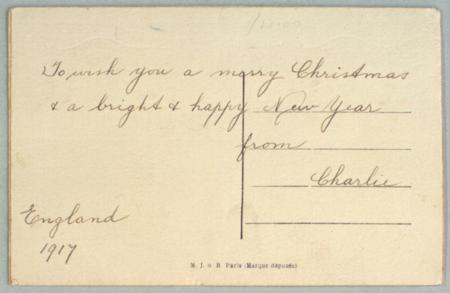 To wish you a merry Christmas
& a bright & happy New Year
from
Charlie
England
1917
M. J. o B Paris (Marque déposée)